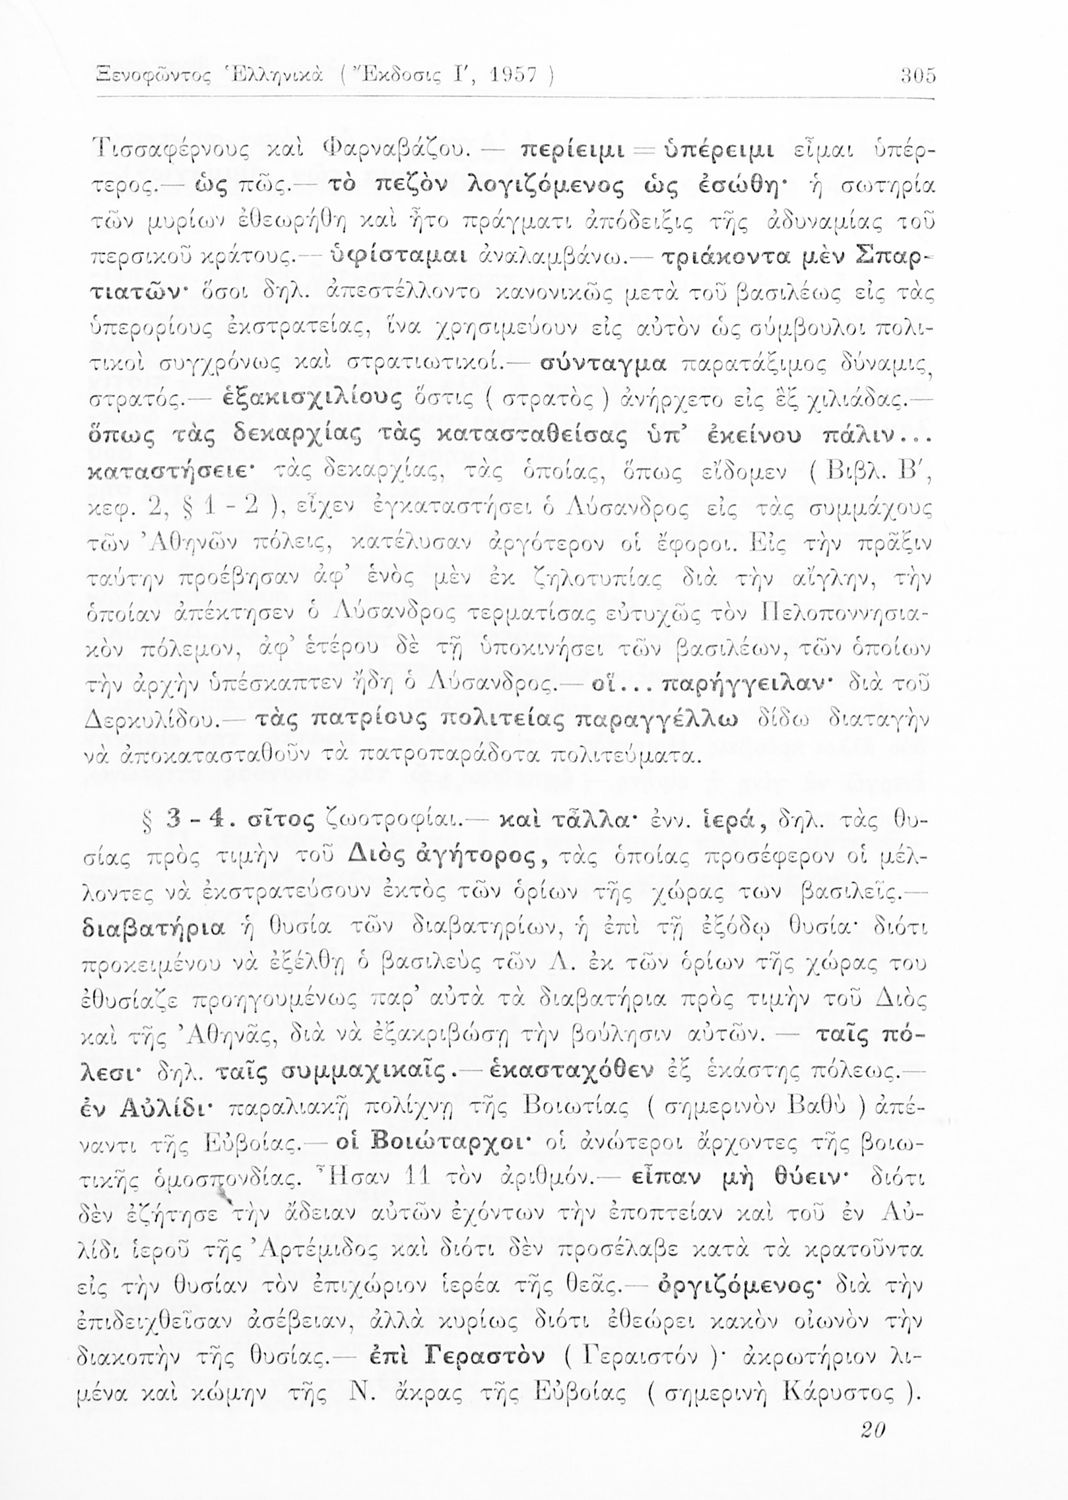 Ξενοφῶντος Ἑλληνικὰ ( Ἔκδοσις Γ΄, 1957 ) 305
Τισσαφέρνους καὶ Φαρναβάζου. — περίειμι = ὑπέρειμι εἶμαι ὑπέρ-
τερος.— ὡς πῶς.— τὸ πεζὸν λογιζόμενος ὡς ἐσώθη· ἡ σωτηρία
τῶν μυρίων ἐθεωρήθη καὶ ἦτο πράγματι ἀπόδειξις τῆς ἀδυναμίας τοῦ
περσικοῦ κράτους.— ὑφίσταμαι ἀναλαμβάνω.— τριάκοντα μὲν Σπαρ-
τιατῶν· ὅσοι δηλ. ἀπεστέλλοντο κανονικῶς μετὰ τοῦ βασιλέως εἰς τὰς
ὑπερορίους ἐκστρατείας, ἵνα χρησιμεύουν εἰς αὐτὸν ὡς σύμβουλοι πολι-
τικοὶ συγχρόνως καὶ στρατιωτικοί.— σύνταγμα παρατάξιμος δύναμις,
στρατός.— ἑξακισχιλίους ὅστις ( στρατὸς ) ἀνήρχετο εἰς ἓξ χιλιάδας.—
ὅπως τὰς δεκαρχίας τὰς κατασταθείσας ὑπ’ ἐκείνου πάλιν...
καταστήσειε· τὰς δεκαρχίας, τὰς ὁποίας, ὅπως εἴδομεν ( Βιβλ. Β΄,
κεφ. 2, § 1 - 2 ), εἶχεν ἐγκαταστήσει ὁ Λύσανδρος εἰς τὰς συμμάχους
τῶν Ἀθηνῶν πόλεις, κατέλυσαν ἀργότερον οἱ ἔφοροι. Εἰς τὴν πρᾶξιν
ταύτην προέβησαν ἀφ’ ἑνὸς μὲν ἐκ ζηλοτυπίας διὰ τὴν αἴγλην, τὴν
ὁποίαν ἀπέκτησεν ὁ Λύσανδρος τερματίσας εὐτυχῶς τὸν Πελοποννησια-
κὸν πόλεμον, ἀφ’ ἑτέρου δὲ τῇ ὑποκινήσει τῶν βασιλέων, τῶν ὁποίων
τὴν ἀρχὴν ὑπέσκαπτεν ἤδη ὁ Λύσανδρος.— οἵ... παρήγγειλαν· διὰ τοῦ
Δερκυλίδου.— τὰς πατρίους πολιτείας παραγγέλλω δίδω διαταγὴν
νὰ ἀποκατασταθοῦν τὰ πατροπαράδοτα πολιτεύματα.
§ 3 - 4. σῖτος ζωοτροφίαι.— καὶ τἆλλα· ἐνν. ἱερά, δηλ. τὰς θυ-
σίας πρὸς τιμὴν τοῦ Διὸς ἀγήτορος, τὰς ὁποίας προσέφερον οἱ μέλ-
λοντες νὰ ἐκστρατεύσουν ἐκτὸς τῶν ὁρίων τῆς χώρας των βασιλεῖς.—
διαβατήρια ἡ θυσία τῶν διαβατηρίων, ἡ ἐπὶ τῇ ἐξόδῳ θυσία· διότι
προκειμένου νὰ ἐξέλθῃ ὁ βασιλεὺς τῶν Λ. ἐκ τῶν ὁρίων τῆς χώρας του
ἐθυσίαζε προηγουμένως παρ’ αὐτὰ τὰ διαβατήρια πρὸς τιμὴν τοῦ Διὸς
καὶ τῆς Ἀθηνᾶς, διὰ νὰ ἐξακριβώσῃ τὴν βούλησιν αὐτῶν. — ταῖς πό-
λεσι· δηλ. ταῖς συμμαχικαῖς.— ἑκασταχόθεν ἐξ ἑκάστης πόλεως.—
ἐν Αὐλίδι· παραλιακῇ πολίχνῃ τῆς Βοιωτίας ( σημερινὸν Βαθὺ ) ἀπέ-
ναντι τῆς Εὐβοίας.— οἱ Βοιώταρχοι· οἱ ἀνώτεροι ἄρχοντες τῆς βοιω-
τικῆς ὁμοσπονδίας. Ἦσαν 11 τὸν ἀριθμόν.— εἶπαν μὴ θύειν· διότι
δὲν ἐζήτησε τὴν ἄδειαν αὐτῶν ἐχόντων τὴν ἐποπτείαν καὶ τοῦ ἐν Αὐ-
λίδι ἱεροῦ τῆς Ἀρτέμιδος καὶ διότι δὲν προσέλαβε κατὰ τὰ κρατοῦντα
εἰς τὴν θυσίαν τὸν ἐπιχώριον ἱερέα τῆς θεᾶς.— ὀργιζόμενος· διὰ τὴν
ἐπιδειχθεῖσαν ἀσέβειαν, ἀλλὰ κυρίως διότι ἐθεώρει κακὸν οἰωνὸν τὴν
διακοπὴν τῆς θυσίας.— ἐπὶ Γεραστὸν ( Γεραιστόν )· ἀκρωτήριον λι-
μένα καὶ κώμην τῆς Ν. ἄκρας τῆς Εὐβοίας ( σημερινὴ Κάρυστος ).
20